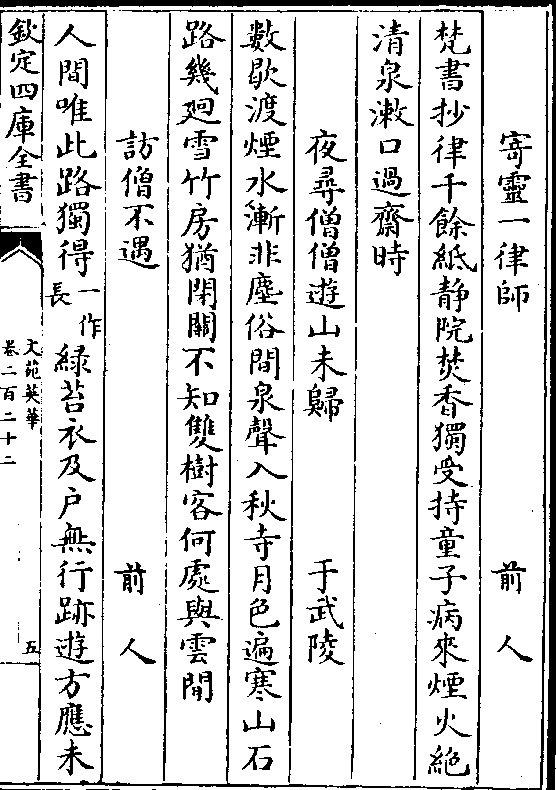 寄靈一律師　前人
梵書抄律千餘紙静院焚香獨受持童子病來煙火絶
清泉漱口過齋時
夜尋僧僧遊山未歸　于武陵
數歇渡煙水漸非塵俗間泉聲入秋寺月色遍寒山石
路幾廻雪竹房猶閉關不知雙樹客何處與雲閒
訪僧不遇　前人
人間唯此路獨得一作長緑苔衣及户無行跡遊方應未
欽定四庫全書
文苑英華
卷二百二十二
五